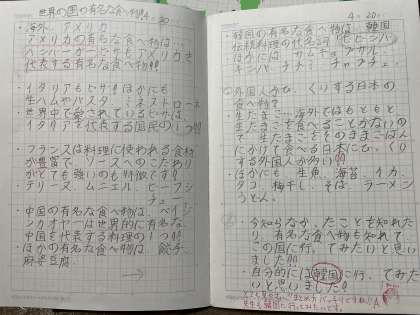 世界の国の有名な食べ物
4 20
・海外、アメリカ
アメリカの有名な食べ物は…
ハンバーガーピザもアメリカを
代表する有名な食べ物!!
・イタリアもピザ!!ほかにも
生ハムやパスタ ミネストローネ
・世界中で愛されているピザは、
イタリアを代表する国民の1つ!!
・フランスは料理に使われる食材
が豊富で、ソースへのこだわり
がとても強いのも特徴です!
テリーヌ、ムニエル、ビーフシ
チュー
・中国の有名な食べ物は、ペイジ
ンカオヤーは世界的に有名な
中国を代表する料理の1つ!!
・ほかの有名な食べ物は、餃子、
麻婆豆腐
→
4.20.
・韓国の有名な食べ物は…韓国
伝統料理の代名詞「ビビンバ」
ほかには サムギョプサル
キンパ、チヂミ チャプチェ
外国人がびっくりする日本の
食べ物?
生たまご…海外ではもともと
生たまごを食べることがないの
で生たまごをそのままごはん
にかけて食べる日本にびっくり
する外国人が多い!!
・ほかにも 生魚、海苔、イカ、
タコ、梅干し、そば、ラーメン
うどん。
・今知らなかったことを知れた
り、有名な食べ物も知れて
この国に行ってみたいと思い
ました!!
・自分的には韓国に行ってみた
いと思いました!